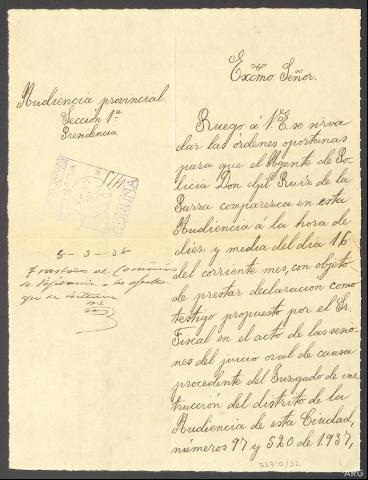 Excmo. Señor.
Audiencia provincial.
Sección 1ª
Presidencia.
CORUÑA
8-3-38
Traslado al Comisario
que se interesan
Ruego á V.E. se sirva
dar las órdenes oportunas
para que el Agente de Po-
licia Don Gil Ruiz de la
Parra comparezca en esta
Audiencia á la hora de
diez y media del dia 16
del corriente mes, con objeto
de prestar declaración como
testigo propuesto por el Sr.
Fiscal en el acto de las sesio-
nes del juicio oral de causa
procedente del Juzgado de ins-
trucción del distrito de la
Audiencia de esta Ciudad,
números 97 y 520 de 1937,
ARG